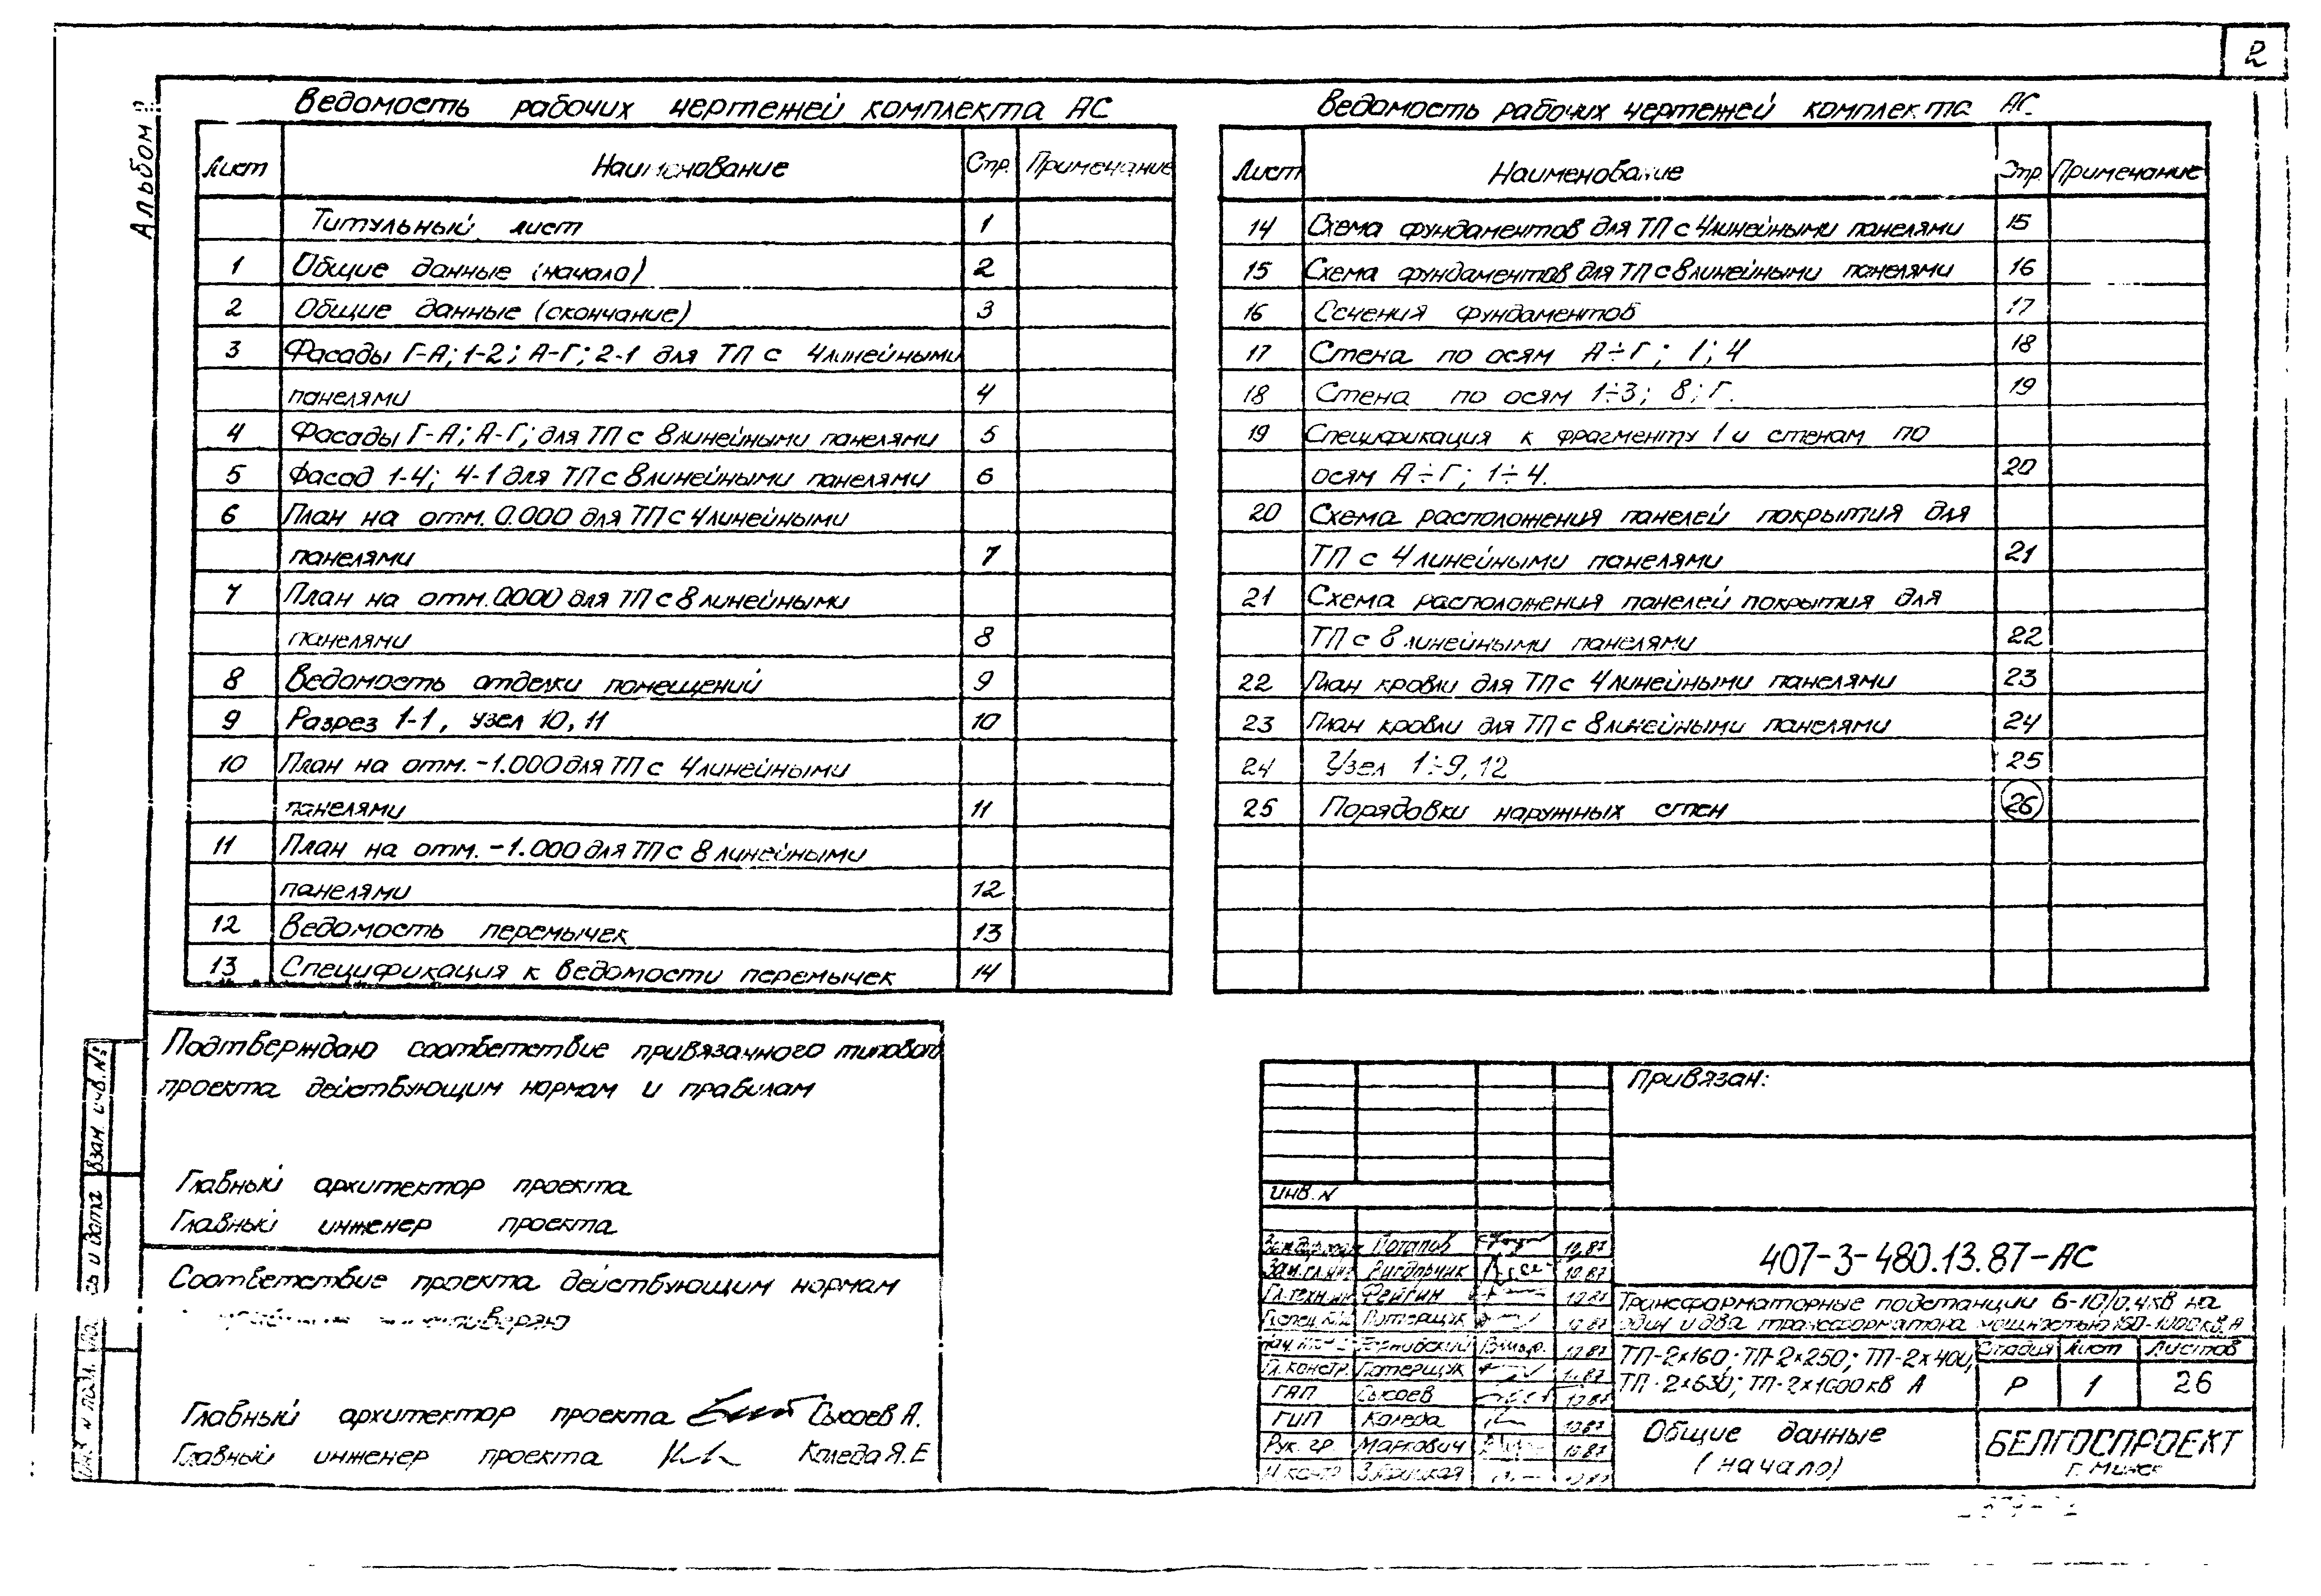 2
Альбом
Ведомость рабочих чертежей комплекта АС
Лист Наименование Стр. Примечание
Титульный лист 1
1 Общие данные (начало) 2
2 Общие данные (окончание) 3
3 Фасады Г-А; 1-2; А-Г; 2-1 для ТП с 4 линейными
панелями 4
4 Фасады Г-А; А-Г; для ТП с 8 линейными панелями 5
5 Фасад 1-4; 4-1 для ТП с 8 линейными панелями 6
6 План на отм. 0.000 для ТП с 4 линейными
панелями 7
7 План на отм. 0.000 для ТП с 8 линейными
панелями 8
8 Ведомость отделки помещений 9
9 Разрез 1-1, узел 10, 11 10
10 План на отм. -1.000 для ТП с 4 линейными
панелями 11
11 План на отм. -1.000 для ТП с 8 линейными
панелями 12
12 Ведомость перемычек 13
13 Спецификация к ведомости перемычек 14
Ведомость рабочих чертежей комплекта АС
Лист Наименование Стр. Примечание
14 Схема фундаментов для ТП с 4 линейными панелями 15
15 Схема фундаментов для ТП с 8 линейными панелями 16
16 Сечения фундаментов 17
17 Стена по осям А÷Г; 1; 4 18
18 Стена по осям 1÷3; 8; Г. 19
19 Спецификация к фрагменту 1 и стенам по
осям А÷Г; 1÷4. 20
20 Схема расположения панелей покрытия для
ТП с 4 линейными панелями 21
21 Схема расположения панелей покрытия для
ТП с 8 линейными панелями 22
22 План кровли для ТП с 4 линейными панелями 23
23 План кровли для ТП с 8 линейными панелями 24
24 Узел 1÷9, 12 25
25 Порядовки наружных стен 26
Подтверждаю соответствие привязачного типового
проекта действующим нормам и правилам
Главный архитектор проекта
Главный инженер проекта
Соответствие проекта действующим нормам
Главный архитектор проекта Сысоев А.
Главный инженер проекта Коледа Я.Е
Взам. инв. №
и дата
Привязан:
Инв. N
Потапов 10.87
10.87
Фейгин 10.87
Потерщук 10.87
10.87
Гл. констр. Потерщук
ГАП Сысоев 10.87
ГИП Коледа 10.87
Рук. гр. Маркович 10.87
407-3-480.13.87-АС
Трансформаторные подстанции 6-10/0.4кВ на
один и два трансформатора мощностью 160-1000кВ.А
ТП-2×160; ТП-2×250; ТП-2×400;
ТП-2×630; ТП-2×1000кВ А
Стадия Лист Листов
Р 1 26
Общие данные
(начало)
БЕЛГОСПРОЕКТ
г. Минск